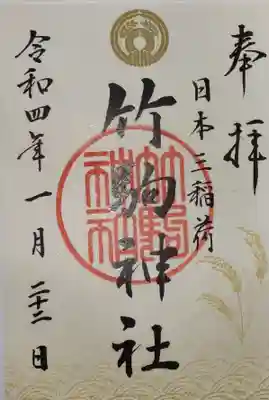 奉拝
日本三稲荷
竹駒神社
竹駒神社
令和四年一月二十二日